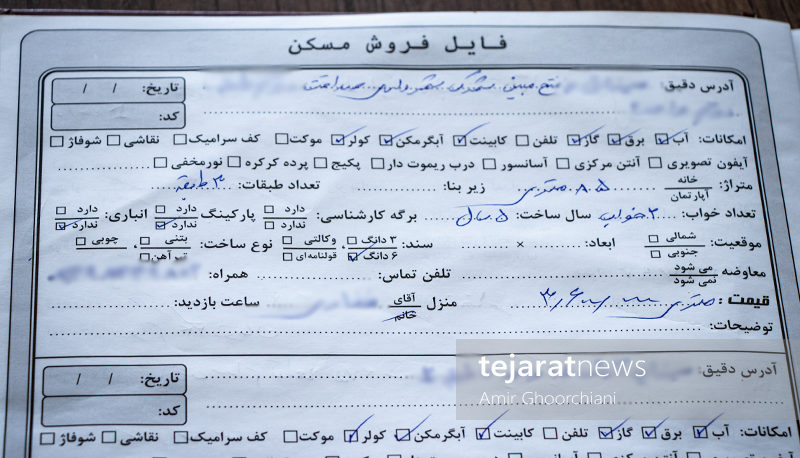 فایل فروش مسکن
آدرس دقیق: تاریخ: / /
کد:
امکانات: آب برق گاز تلفن کابینت آبگرمکن کولر موکت کف سرامیک نقاشی شوفاژ
آیفون تصویری آنتن مرکزی آسانسور درب ریموت دار پکیج پرده کرکره نورمخفی
متراژ: خانه آپارتمان ۸۵ متری زیر بنا: تعداد طبقات: ۳ طبقه
تعداد خواب: ۲ خواب سال ساخت: ۵ سال برگه کارشناسی: دارد ندارد پارکینگ دارد ندارد انباری: دارد ندارد
موقعیت: شمالی جنوبی ابعاد: × سند: ۳ دانگ ۶ دانگ وکالتی قولنامه‌ای نوع ساخت: بتنی تیرآهن چوبی
معاوضه می شود نمی شود تلفن تماس: همراه:
قیمت: متری منزل آقای خانم ساعت بازدید:
توضیحات:
آدرس دقیق: تاریخ: / /
کد:
tejaratnews
Amir Ghoorchiani
امکانات: آب برق گاز تلفن کابینت آبگرمکن کولر موکت کف سرامیک نقاشی شوفاژ